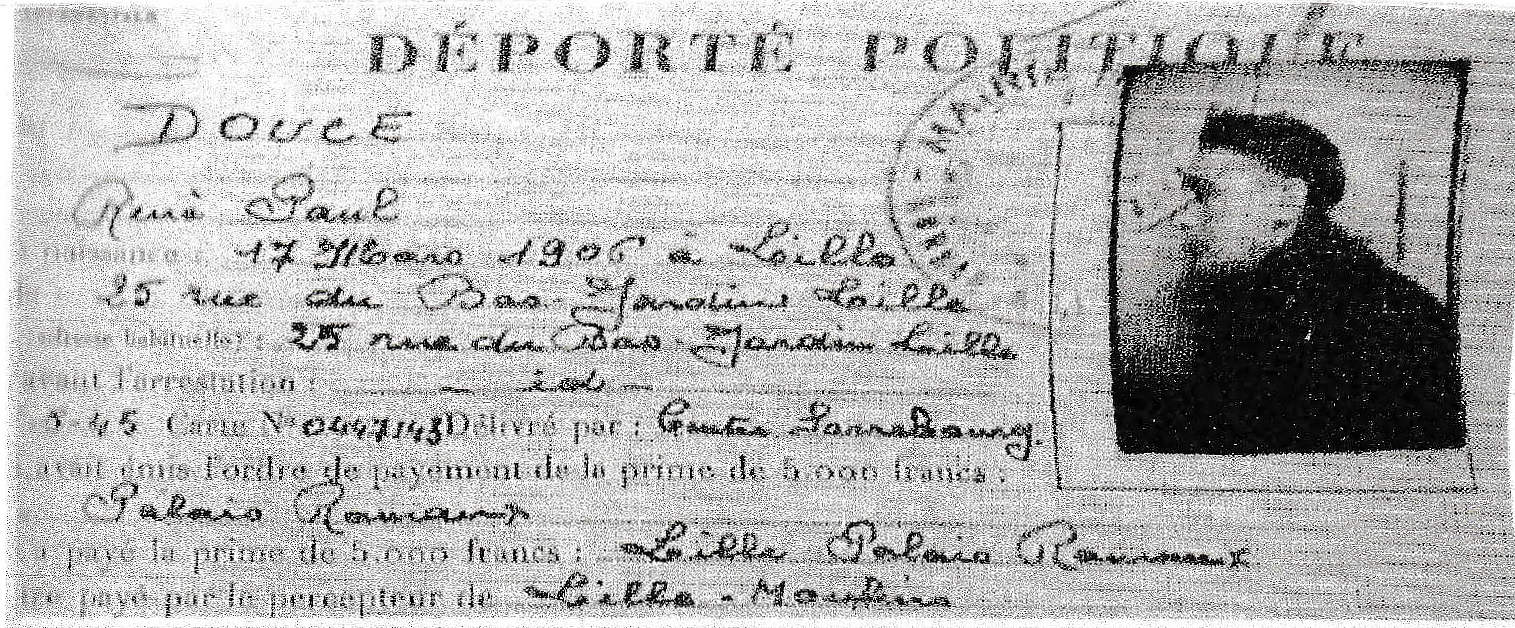 DÉPORTÉ POLITIQUE
MAIRIE
DOUCE
René Paul
naissance : 17 Mars 1906 à Lille
25 rue du Bas-Jardin Lille
habituelle) : 25 rue du Bas-Jardin Lille
avant l'arrestation : — id —
5-45 Carte N° 0447143 Délivré par : Centre Sarrebourg.
ayant émis l'ordre de payement de la prime de 5.000 francs :
Palais Rameaux
payé la prime de 5.000 francs : Lille Palais Rameaux
payé par le percepteur de Lille-Moulins